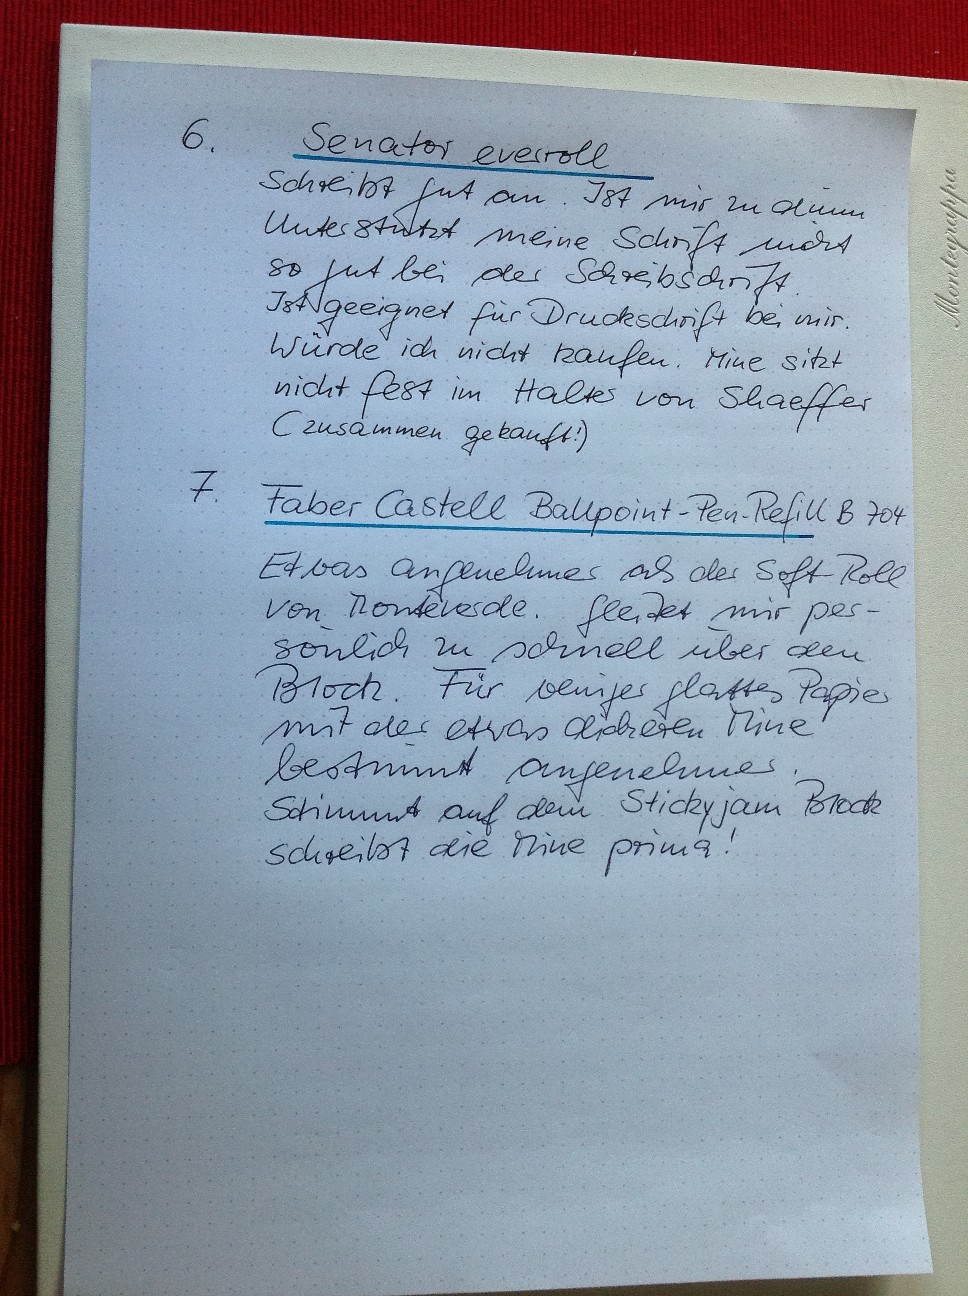 6. Senator everroll
Schreibt gut an. Ist mir zu dünn
Unterstützt meine Schrift nicht
so gut bei der Schreibschrift.
Ist geeignet für Druckschrift bei mir.
Würde ich nicht kaufen. Mine sitzt
nicht fest im Halter von Shaeffer
(zusammen gekauft!)
7. Faber Castell Ballpoint-Pen-Refill B 704
Etwas angenehmer als der Soft Roll
von Monteverde. Gleitet mir per-
sönlich zu schnell über den
Block. Für weniger glattes Papier
mit der etwas dickeren Mine
bestimmt angenehmer.
Stimmt auf dem Stickyjam Block
schreibt die Mine prima!
Montegrappa